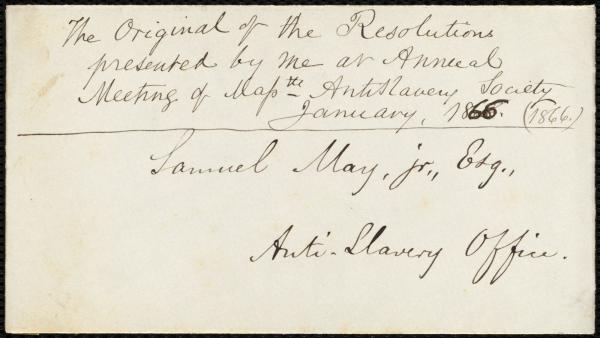 The Original of the Resolutions
presented by me at Annual
Meeting of Masstts Antislavery Society
January, 1866. (1866.)
Samuel May, jr., Esq.,
Anti-Slavery Office.